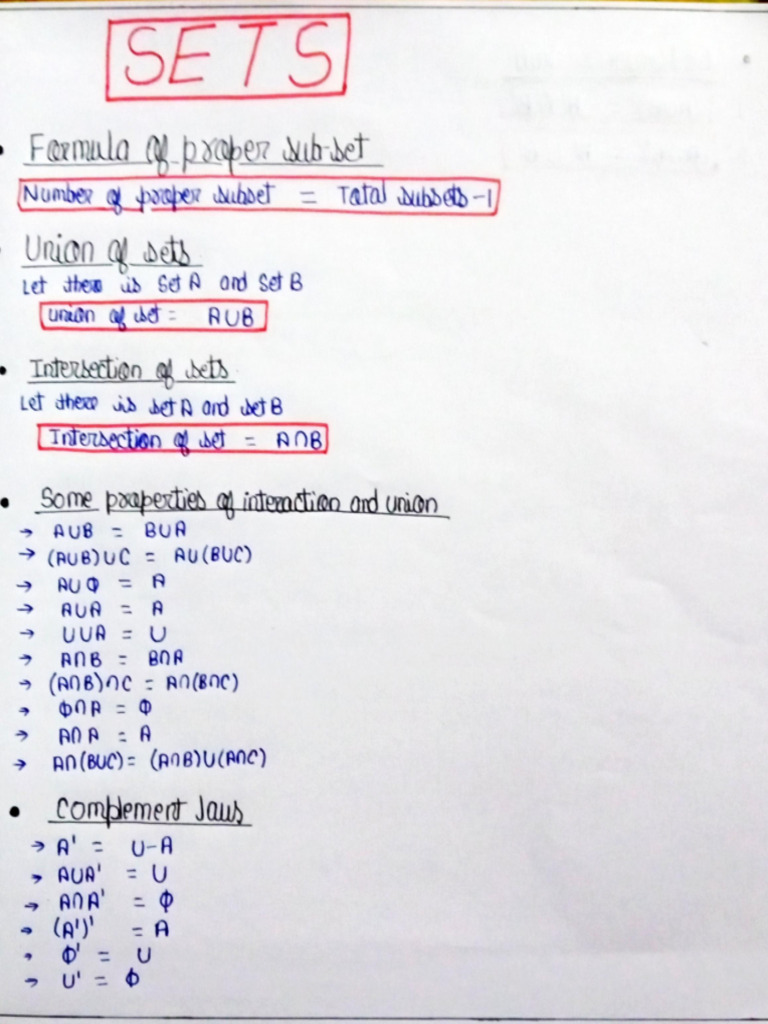 SETS
• Formula of proper sub-set
Number of proper subset = Total subsets-1
Union of sets
Let there is Set A and Set B
union of set = A∪B
• Intersection of sets
Let there is set A and set B
Intersection of set = A∩B
• Some properties of interaction and union
→ A∪B = B∪A
→ (A∪B)∪C = A∪(B∪C)
→ A∪Φ = A
→ A∪A = A
→ U∪A = U
→ A∩B = B∩A
→ (A∩B)∩C = A∩(B∩C)
→ Φ∩A = Φ
→ A∩A = A
→ A∩(B∪C) = (A∩B)∪(A∩C)
• Complement laws
→ A' = U-A
→ A∪A' = U
→ A∩A' = Φ
→ (A')' = A
→ Φ' = U
→ U' = Φ